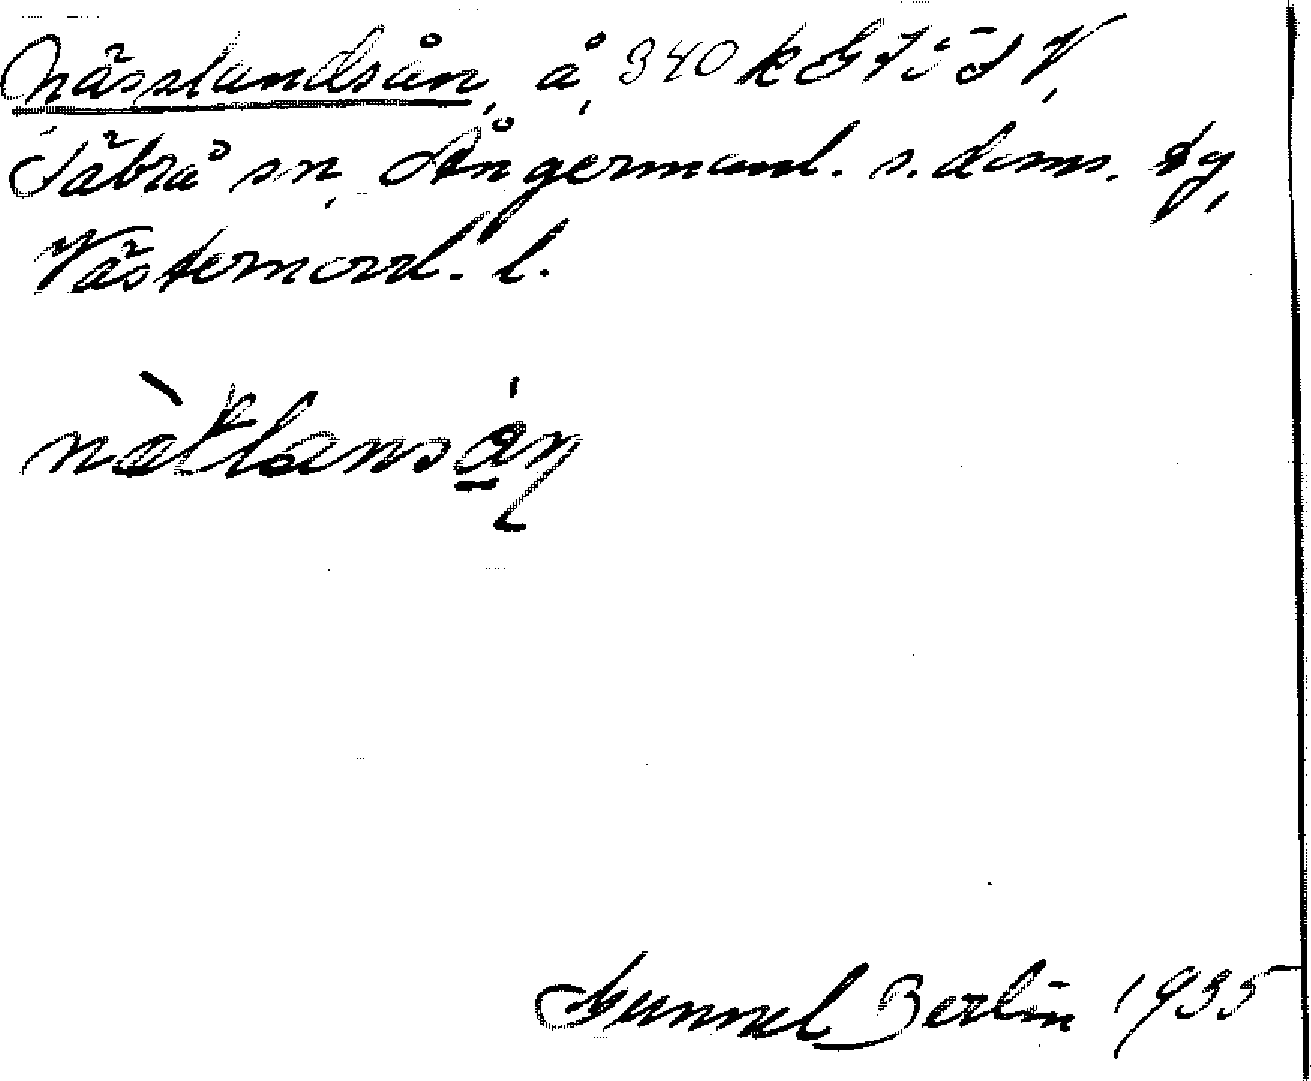 Nässlandsån, å, 340 k G 7 5 d V,
Säbrå sn, Ångermanl. s. doms. tg,
Västernorrl. l.
nætlansån
Gunnel Berlin 1935